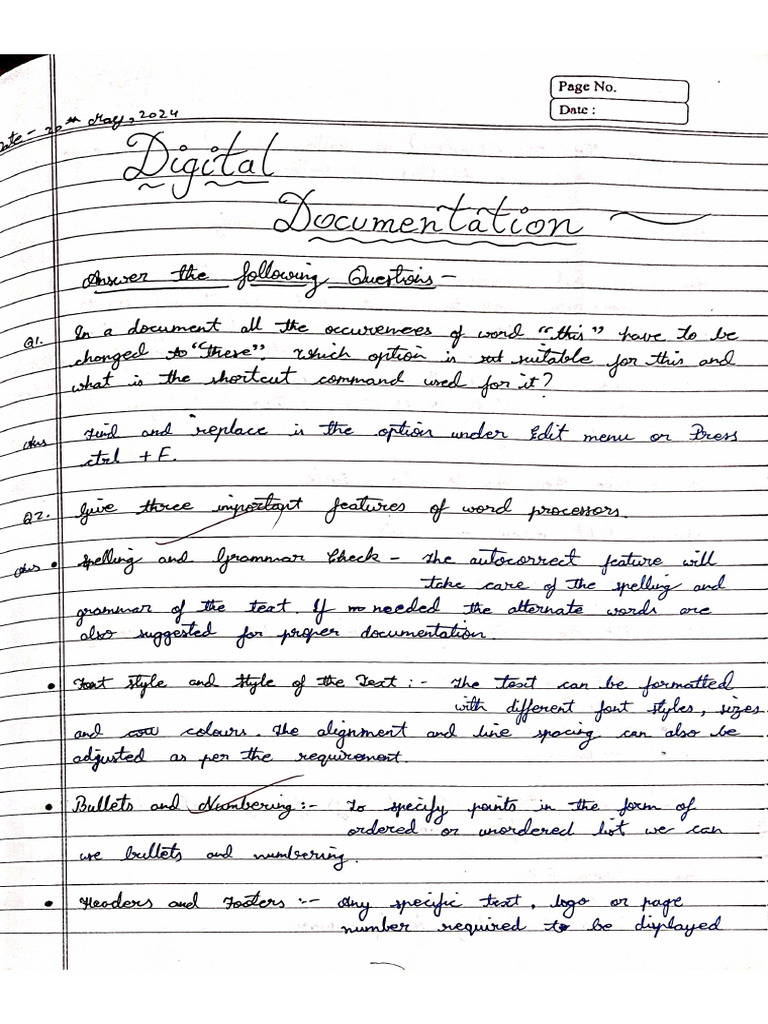 Page No.
Date :
Date - 20th May, 2024
Digital
Documentation
Answer the following Questions -
Q1. In a document all the occurences of word "this" have to be
changed to "these". Which option is suitable for this and
what is the shortcut command used for it?
Ans Find and replace is the option under Edit menu or Press
ctrl + F.
Q2. Give three important features of word processors.
Ans • Spelling and Grammar Check - The autocorrect feature will
take care of the spelling and
grammar of the text. If needed the alternate words are
also suggested for proper documentation.
• Font style and Style of the Text :- The text can be formatted
with different font styles, sizes
and colours. The alignment and line spacing can also be
adjusted as per the requirement.
• Bullets and Numbering :- To specify points in the form of
ordered or unordered list we can
use bullets and numbering.
• Headers and Footers :- Any specific text, logo or page
number required to be displayed